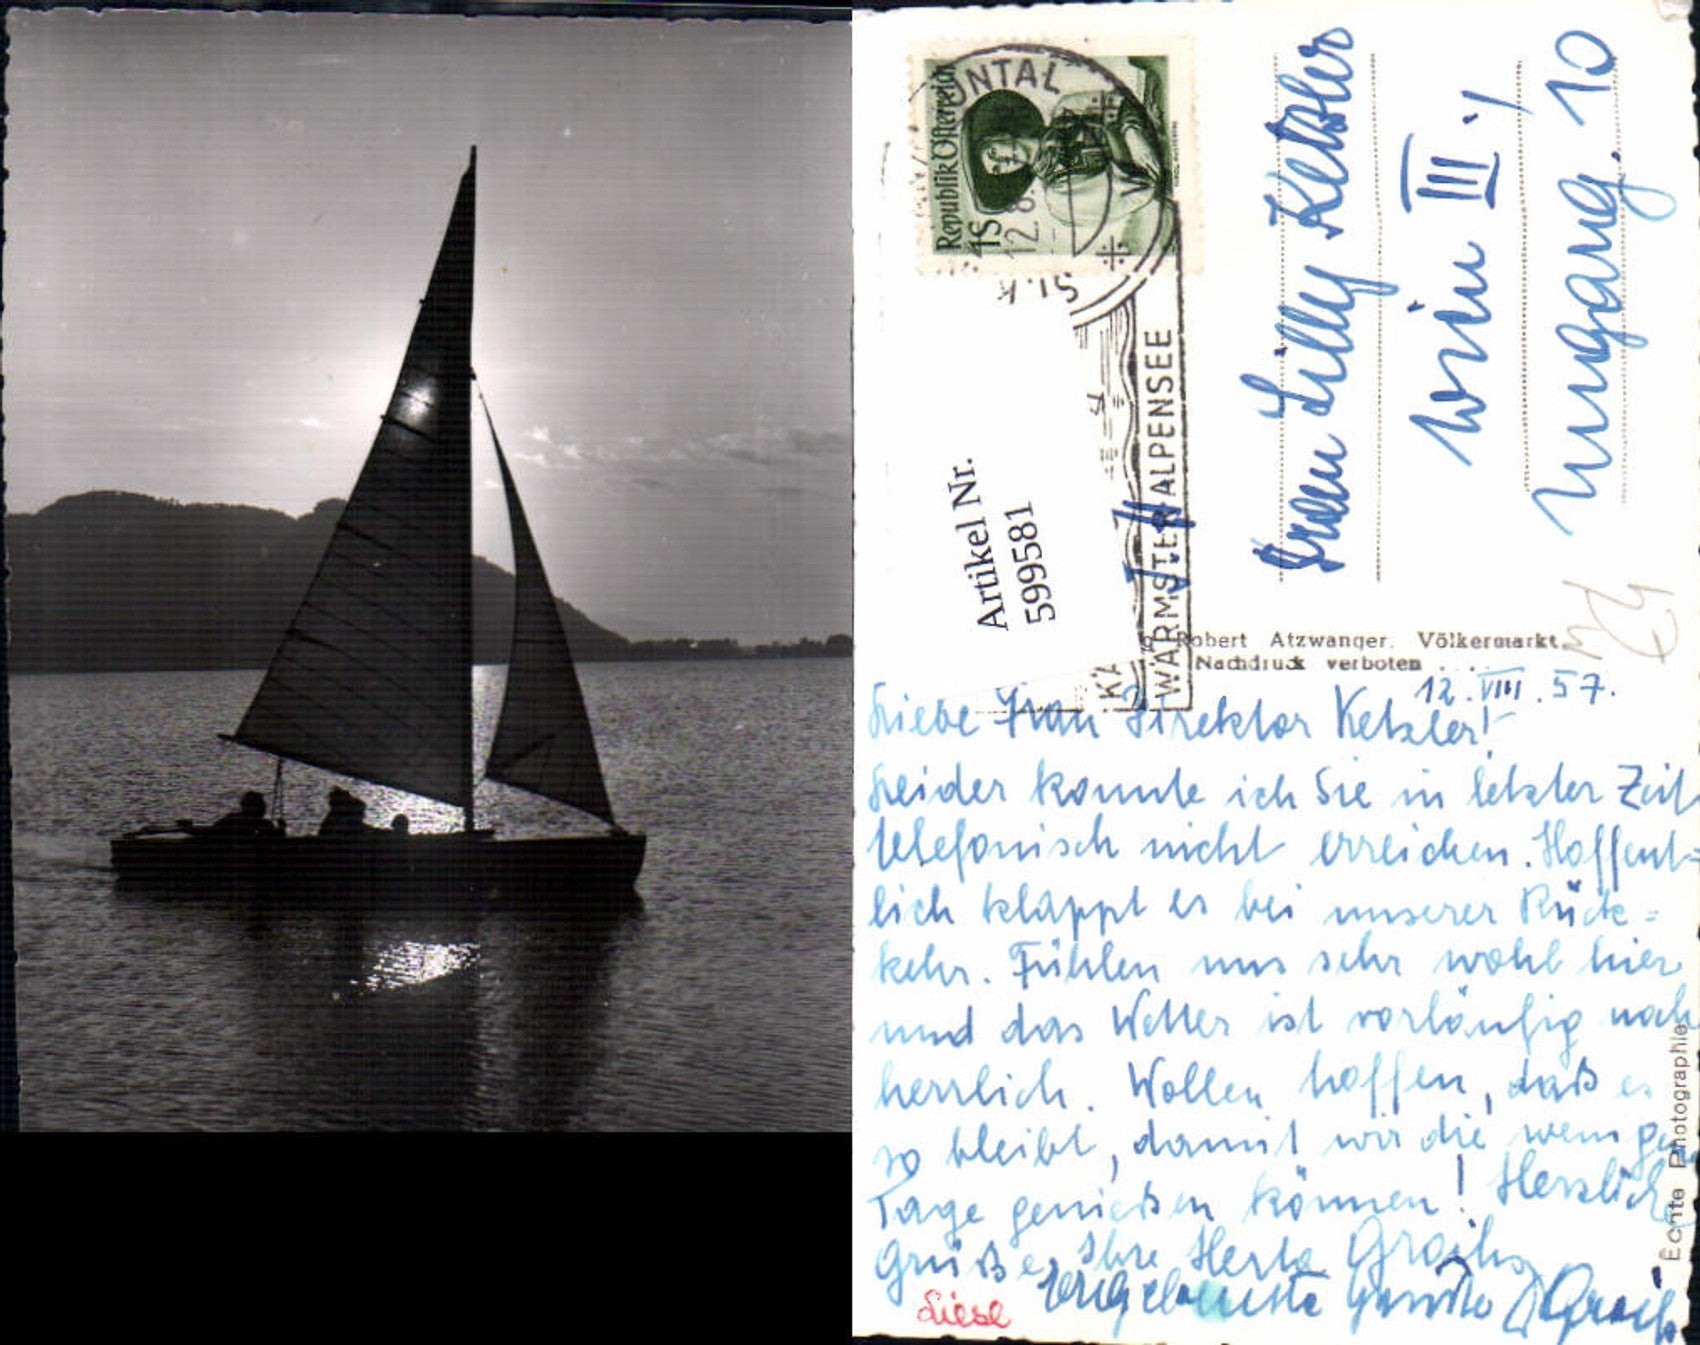 Republik Österreich
1S
NTAL
12.8
Artikel Nr.
599581
WÄRMSTER ALPENSEE
Lilly Ketzler
Wien III.,
Ungarg. 10
Robert Atzwanger. Völkermarkt.
Nachdruck verboten
12.VIII.57.
Liebe Frau Direktor Ketzler!
Leider konnte ich Sie in letzter Zeit
telefonisch nicht erreichen. Hoffent=
lich klappt es bei unserer Rück=
kehr. Fühlen uns sehr wohl hier
und das Wetter ist vorläufig noch
herrlich. Wollen hoffen, daß es
so bleibt, damit wir die wenigen
Tage genießen können! Herzliche
Grüße, Ihre Herta
Liese
Echte Photographie